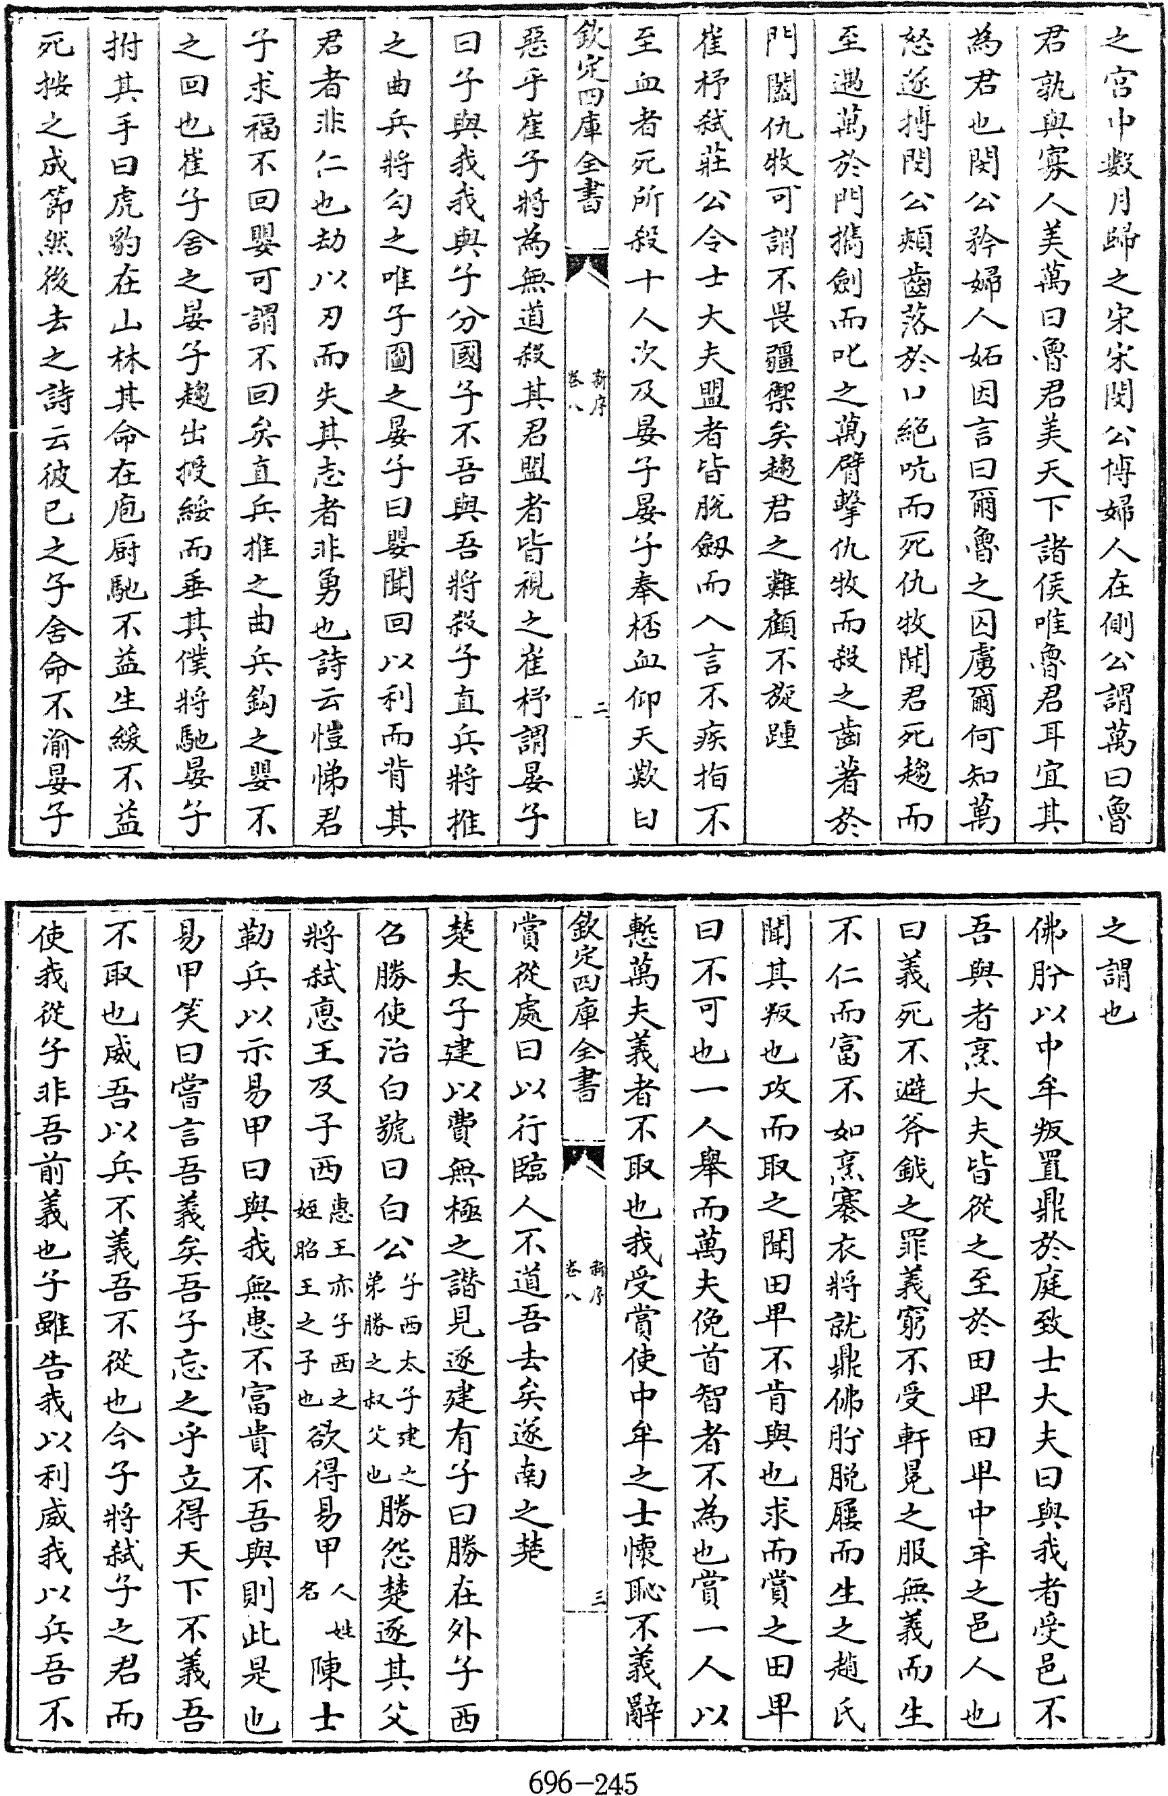 之宫中數月歸之宋宋閔公博婦人在側公謂萬曰魯
君孰與寡人美萬曰魯君美天下諸侯唯魯君耳宜其
為君也閔公矜婦人妬因言曰爾魯之囚虜爾何知萬
怒遂搏閔公頰齒落於口絶吭而死仇牧聞君死趨而
至遇萬於門攜劍而叱之萬臂擊仇牧而殺之齒著於
門闔仇牧可謂不畏彊禦矣趨君之難顧不旋踵
崔杼弑莊公令士大夫盟者皆脱劔而入言不疾指不
至血者死所殺十人次及晏子晏子奉桮血仰天歎曰
欽定四庫全書
新序
卷八
二
惡乎崔子將為無道殺其君盟者皆視之崔杼謂晏子
曰子與我我與子分國子不吾與吾將殺子直兵將推
之曲兵將勾之唯子圖之晏子曰嬰聞回以利而背其
君者非仁也劫以刃而失其志者非勇也詩云愷悌君
子求福不回嬰可謂不回矣直兵推之曲兵鈎之嬰不
之回也崔子舍之晏子趨出授綏而垂其僕將馳晏子
拊其手曰虎豹在山林其命在庖厨馳不益生緩不益
死按之成節然後去之詩云彼已之子舍命不渝晏子
之謂也
佛肸以中牟叛置鼎於庭致士大夫曰與我者受邑不
吾與者烹大夫皆從之至於田卑田卑中牟之邑人也
曰義死不避斧鉞之罪義窮不受軒冕之服無義而生
不仁而富不如烹褰衣將就鼎佛肸脱屨而生之趙氏
聞其叛也攻而取之聞田卑不肯與也求而賞之田卑
曰不可也一人舉而萬夫俛首智者不為也賞一人以
慙萬夫義者不取也我受賞使中牟之士懷恥不義辭
欽定四庫全書
新序
卷八
三
賞從處曰以行臨人不道吾去矣遂南之楚
楚太子建以費無極之譖見逐建有子曰勝在外子西
召勝使治白號曰白公子西太子建之弟勝之叔父也勝怨楚逐其父
將弑惠王及子西惠王亦子西之姪昭王之子也欲得易甲人姓名陳士
勒兵以示易甲曰與我無患不富貴不吾與則此是也
易甲笑曰嘗言吾義矣吾子忘之乎立得天下不義吾
不取也威吾以兵不義吾不從也今子將弑子之君而
使我從子非吾前義也子雖告我以利威我以兵吾不
696-245